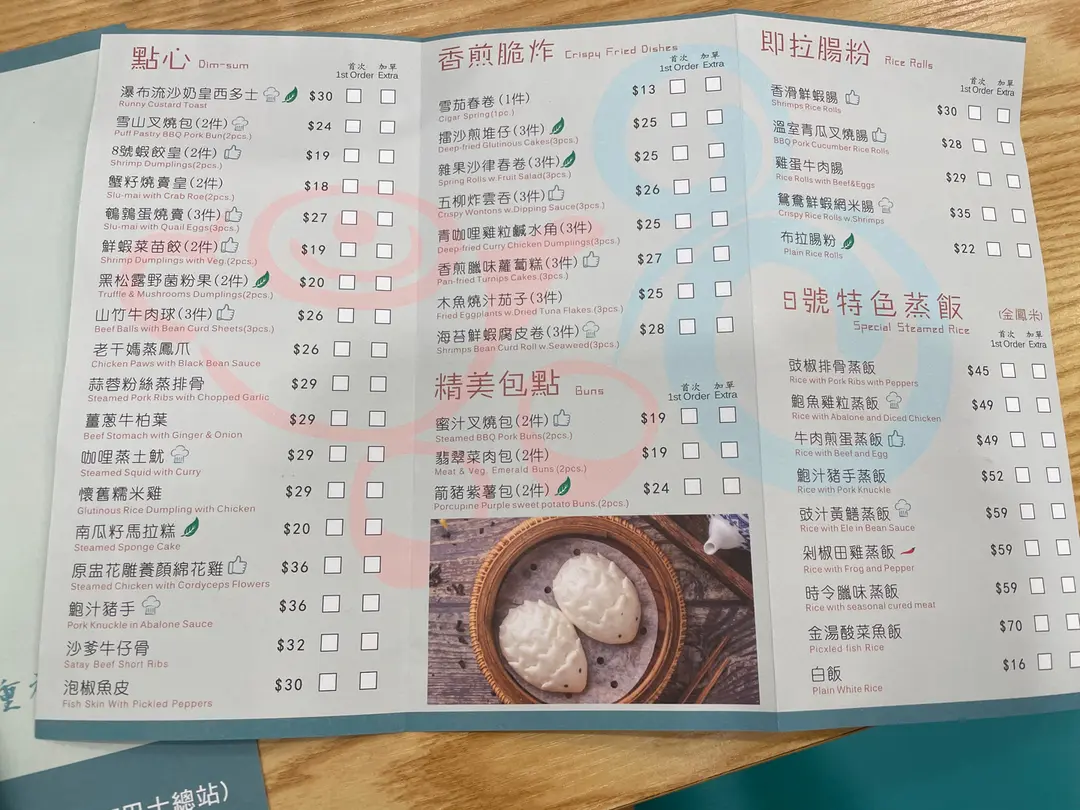 點心 Dim-sum
首次 加單
1st Order Extra
瀑布流沙奶皇西多士 $30
Runny Custard Toast
雪山叉燒包(2件) $24
Puff Pastry BBQ Pork Bun(2pcs.)
8號蝦餃皇(2件) $19
Shrimp Dumplings(2pcs.)
蟹籽燒賣皇(2件) $18
Slu-mai with Crab Roe(2pcs.)
鵪鶉蛋燒賣(3件) $27
Slu-mai with Quail Eggs(3pcs.)
鮮蝦菜苗餃(2件) $19
Shrimp Dumplings with Veg.(2pcs.)
黑松露野菌粉果(2件) $20
Truffle & Mushrooms Dumplings(2pcs.)
山竹牛肉球(3件) $26
Beef Balls with Bean Curd Sheets(3pcs.)
老干媽蒸鳳爪 $26
Chicken Paws with Black Bean Sauce
蒜蓉粉絲蒸排骨 $29
Steamed Pork Ribs with Chopped Garlic
薑蔥牛柏葉 $29
Beef Stomach with Ginger & Onion
咖哩蒸土魷 $29
Steamed Squid with Curry
懷舊糯米雞 $29
Glutinous Rice Dumpling with Chicken
南瓜籽馬拉糕 $20
Steamed Sponge Cake
原盅花雕養顏綿花雞 $36
Steamed Chicken with Cordyceps Flowers
鮑汁豬手 $36
Pork Knuckle in Abalone Sauce
沙爹牛仔骨 $32
Satay Beef Short Ribs
泡椒魚皮 $30
Fish Skin With Pickled Peppers
香煎脆炸 Crispy Fried Dishes
首次 加單
1st Order Extra
雪茄春卷(1件) $13
Cigar Spring(1pc.)
擂沙煎堆仔(3件) $25
Deep-fried Glutinous Cakes(3pcs.)
雜果沙律春卷(3件) $25
Spring Rolls w.Fruit Salad(3pcs.)
五柳炸雲吞(3件) $26
Crispy Wontons w.Dipping Sauce(3pcs.)
青咖哩雞粒鹹水角(3件) $25
Deep-fried Curry Chicken Dumplings(3pcs.)
香煎臘味蘿蔔糕(3件) $27
Pan-fried Turnips Cakes.(3pcs.)
木魚燒汁茄子(3件) $25
Fried Eggplants w.Dried Tuna Flakes.(3pcs.)
海苔鮮蝦腐皮卷(3件) $28
Shrimps Bean Curd Roll w.Seaweed(3pcs.)
精美包點 Buns
首次 加單
1st Order Extra
蜜汁叉燒包(2件) $19
Steamed BBQ Pork Buns(2pcs.)
翡翠菜肉包(2件) $19
Meat & Veg. Emerald Buns.(2pcs.)
箭豬紫薯包(2件) $24
Porcupine Purple sweet potato Buns.(2pcs.)
即拉腸粉 Rice Rolls
首次 加單
1st Order Extra
香滑鮮蝦腸 $30
Shrimps Rice Rolls
溫室青瓜叉燒腸 $28
BBQ Pork Cucumber Rice Rolls
雞蛋牛肉腸 $29
Rice Rolls with Beef&Eggs
鴛鴦鮮蝦網米腸 $35
Crispy Rice Rolls w.Shrimps
布拉腸粉 $22
Plain Rice Rolls
8號特色蒸飯 (金鳳米)
Special Steamed Rice
首次 加單
1st Order Extra
豉椒排骨蒸飯 $45
Rice with Pork Ribs with Peppers
鮑魚雞粒蒸飯 $49
Rice with Abalone and Diced Chicken
牛肉煎蛋蒸飯 $49
Rice with Beef and Egg
鮑汁豬手蒸飯 $52
Rice with Pork Knuckle
豉汁黃鱔蒸飯 $59
Rice with Ele in Bean Sauce
剁椒田雞蒸飯 $59
Rice with Frog and Pepper
時令臘味蒸飯 $59
Rice with seasonal cured meat
金湯酸菜魚飯 $70
Picxled fish Rice
白飯 $16
Plain White Rice
巴士總站)